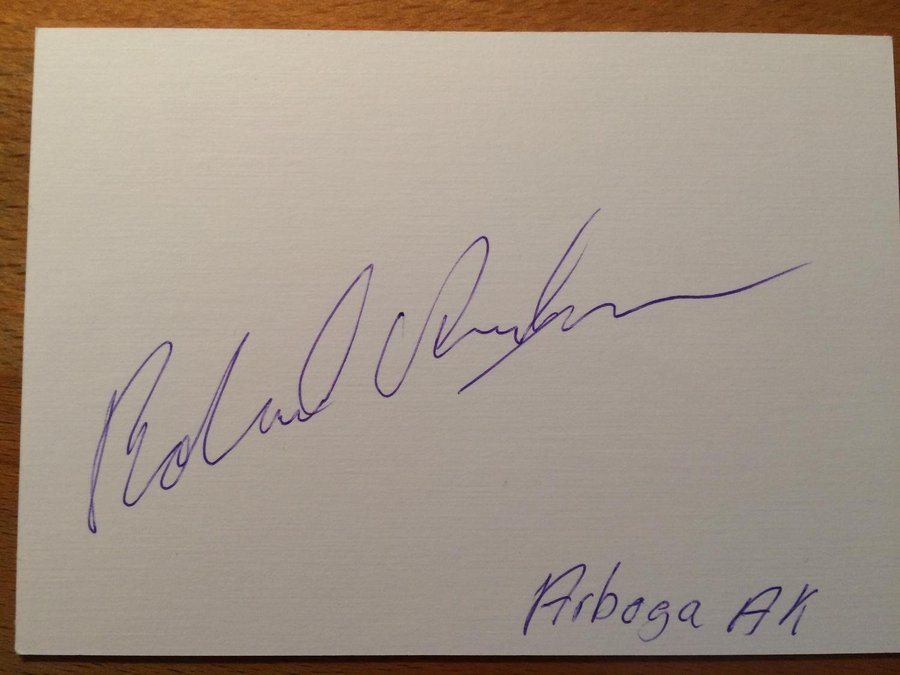 Roland
Arboga AK